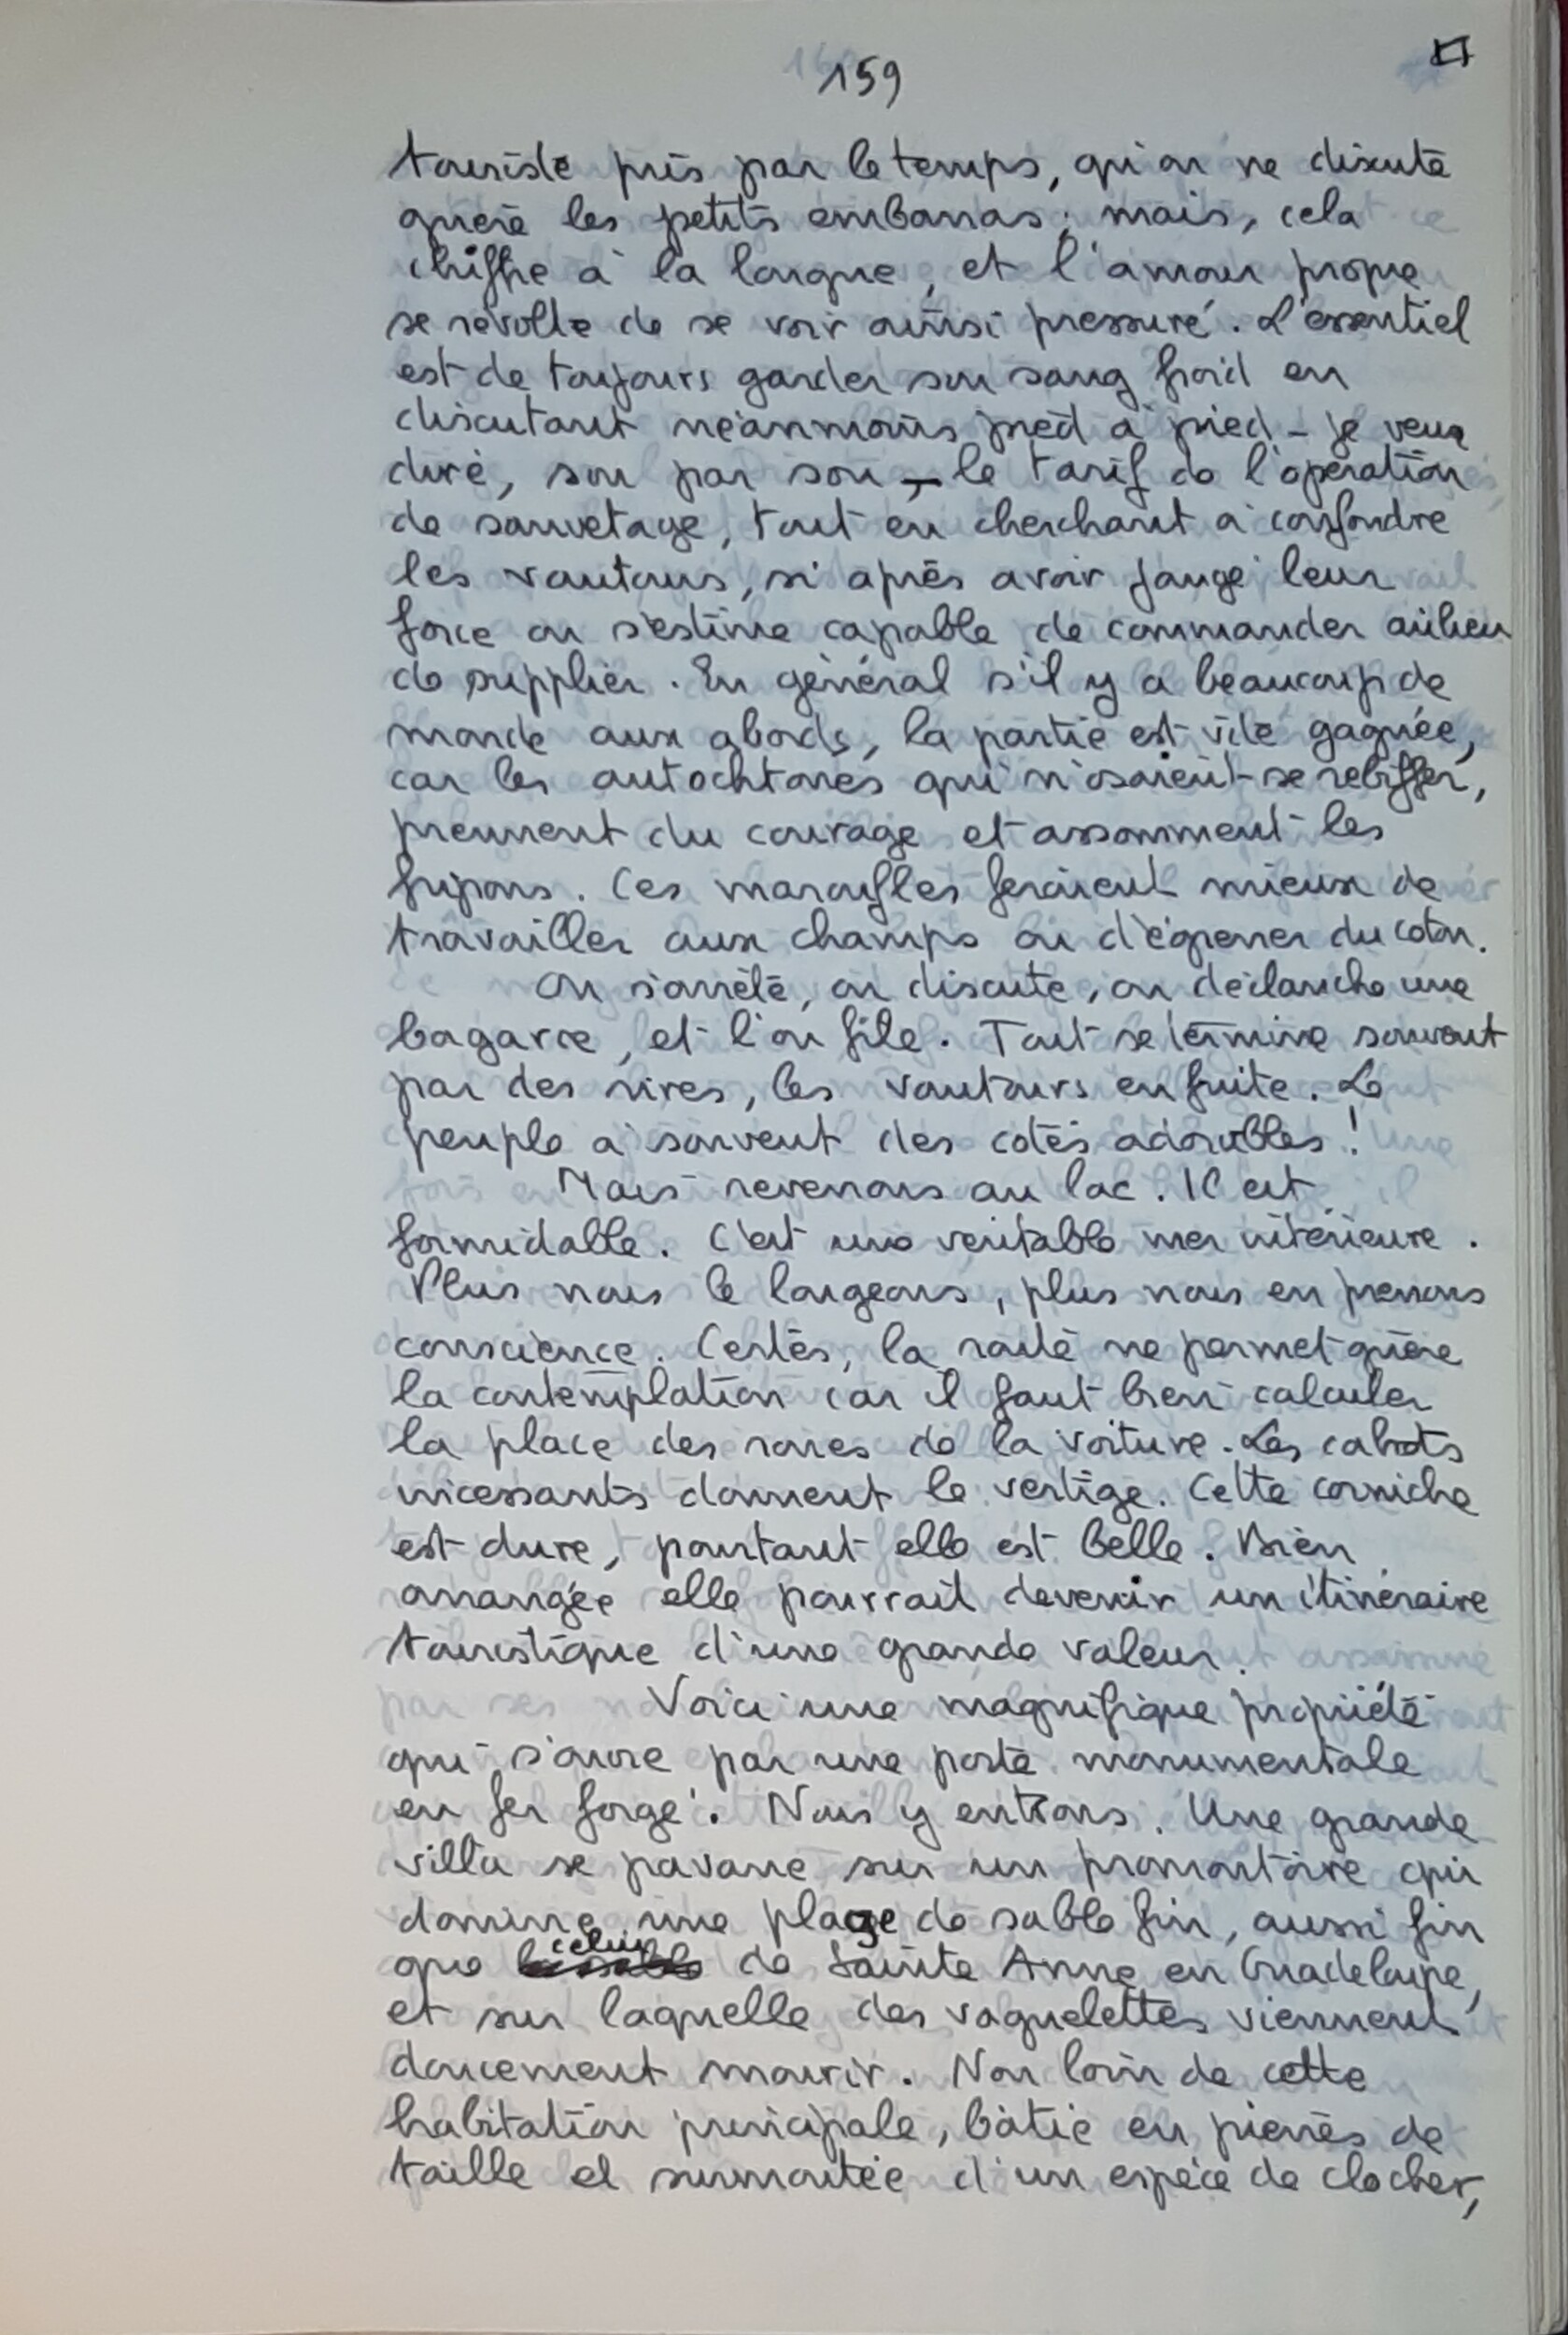 159
touriste pris par le temps, qu'on ne discute
guère les petits embarras ; mais, cela
chiffre à la longue, et l'amour propre
se révolte de se voir ainsi pressuré. L'essentiel
est de toujours garder son sang froid en
discutant néanmoins pied à pied - je veux
dire, sou par sou, - le tarif de l'opération
de sauvetage, tout en cherchant à confondre
les vautours, si après avoir jaugé leur
force on s'estime capable de commander au lieu
de supplier. En général s'il y a beaucoup de
monde aux abords, la partie est vite gagnée,
car les autochtones qui n'osaient se rebiffer,
prennent du courage et assomment les
fripons. Ces maroufles feraient mieux de
travailler aux champs ou d'égrener du coton.
On s'arrête, on discute, on déclanche une
bagarre, et l'on file. Tout se termine souvent
par des rires, les vautours en fuite. Le
peuple a souvent des cotés adorables !
Mais revenons au lac. Il est
formidable. C'est une véritable mer intérieure.
Plus nous le longeons, plus nous en prenons
conscience. Certes, la route ne permet guère
la contemplation car il faut bien calculer
la place des roues de la voiture. Les cahots
incessants donnent le vertige. Cette corniche
est dure, pourtant elle est belle. Bien
arrangée elle pourrait devenir un itinéraire
touristique d'une grande valeur.
Voici une magnifique propriété
qui s'ouvre par une porte monumentale
en fer forgé. Nous y entrons. Une grande
villa se pavane sur un promontoire qui
domine une plage de sable fin, aussi fin
que celui de Sainte Anne en Guadeloupe,
et sur laquelle des vaguelettes viennent
doucement mourir. Non loin de cette
habitation principale, bâtie en pierres de
taille et surmontée d'un espèce de clocher,